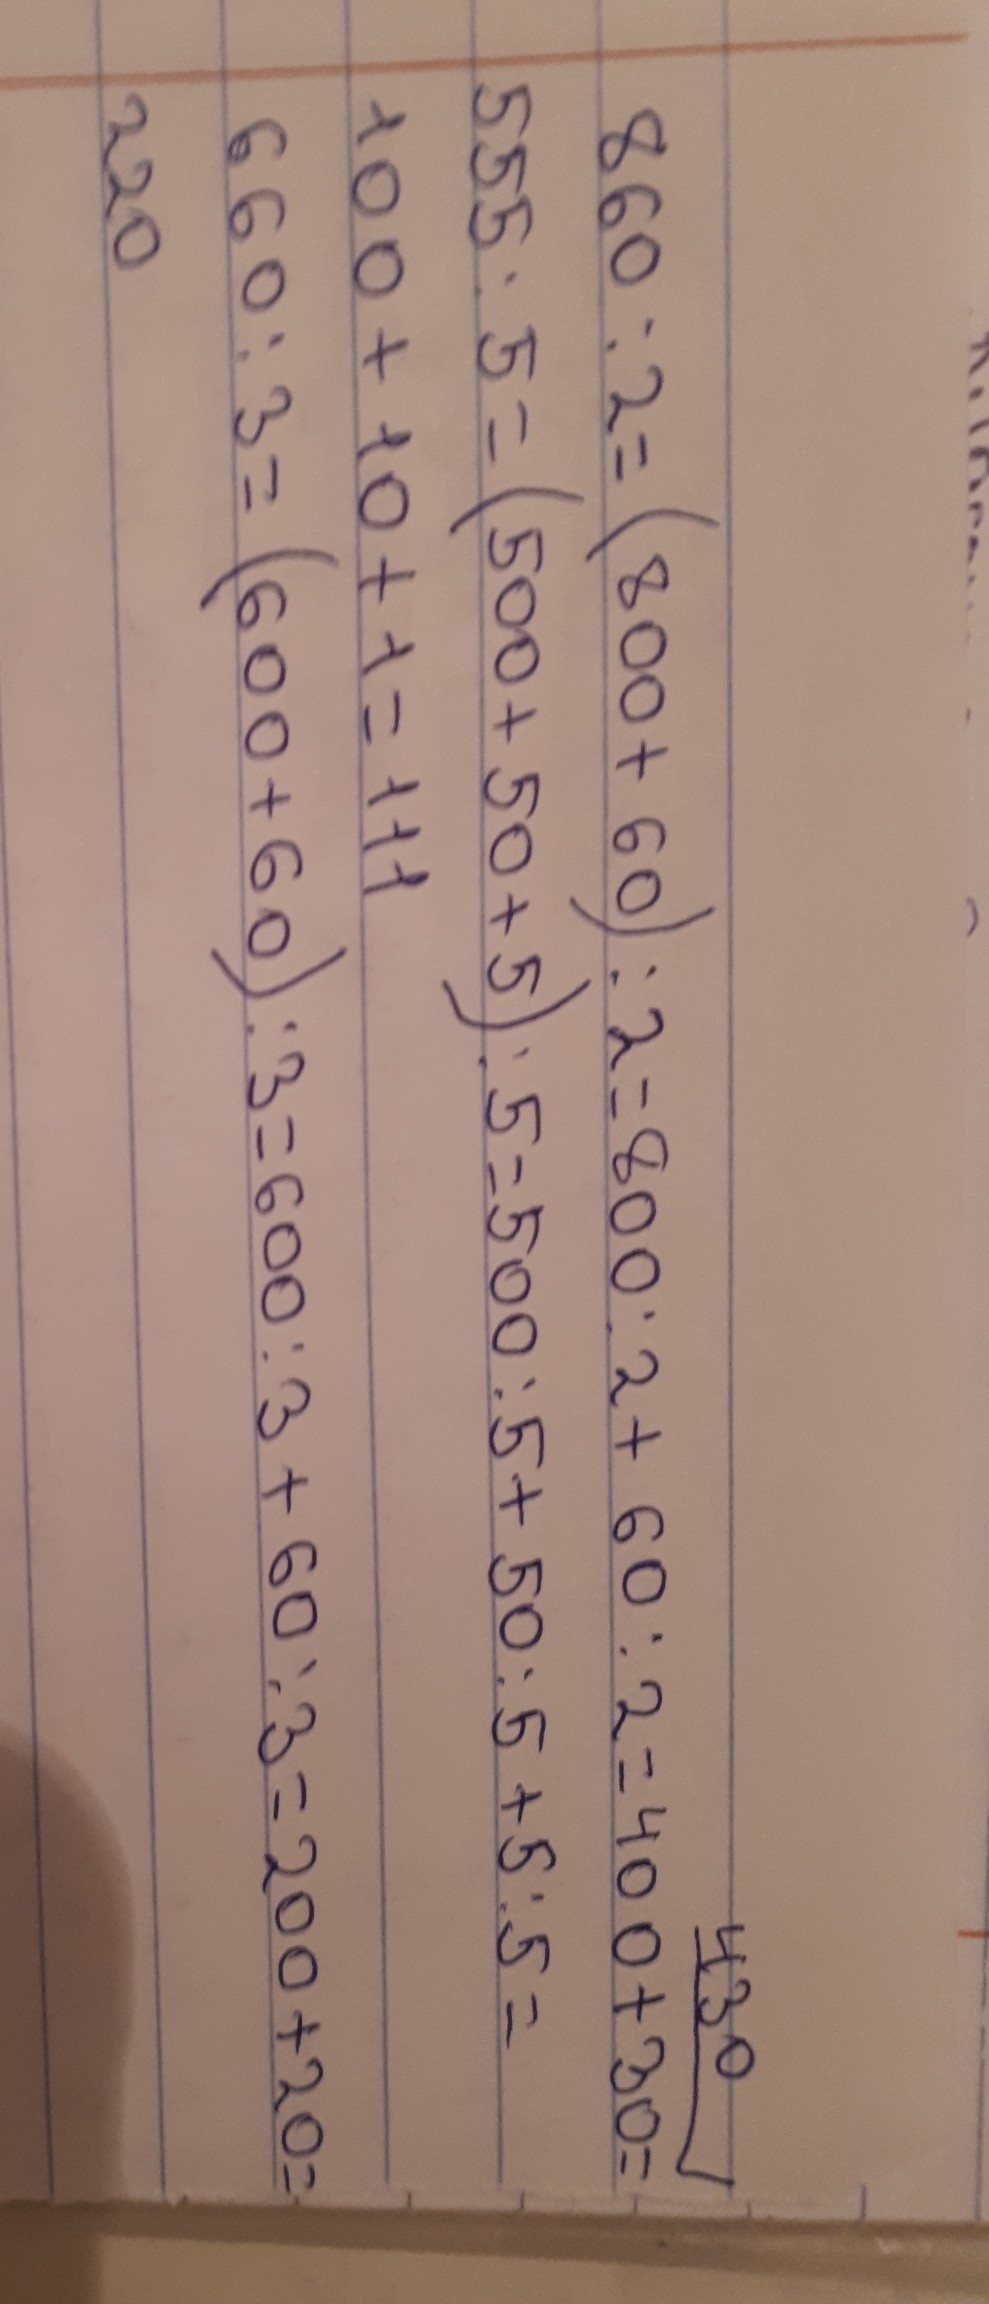 430
860:2=(800+60):2=800:2+60:2=400+30=
555:5=(500+50+5):5=500:5+50:5+5:5=
100+10+1=111
660:3=(600+60):3=600:3+60:3=200+20=
220